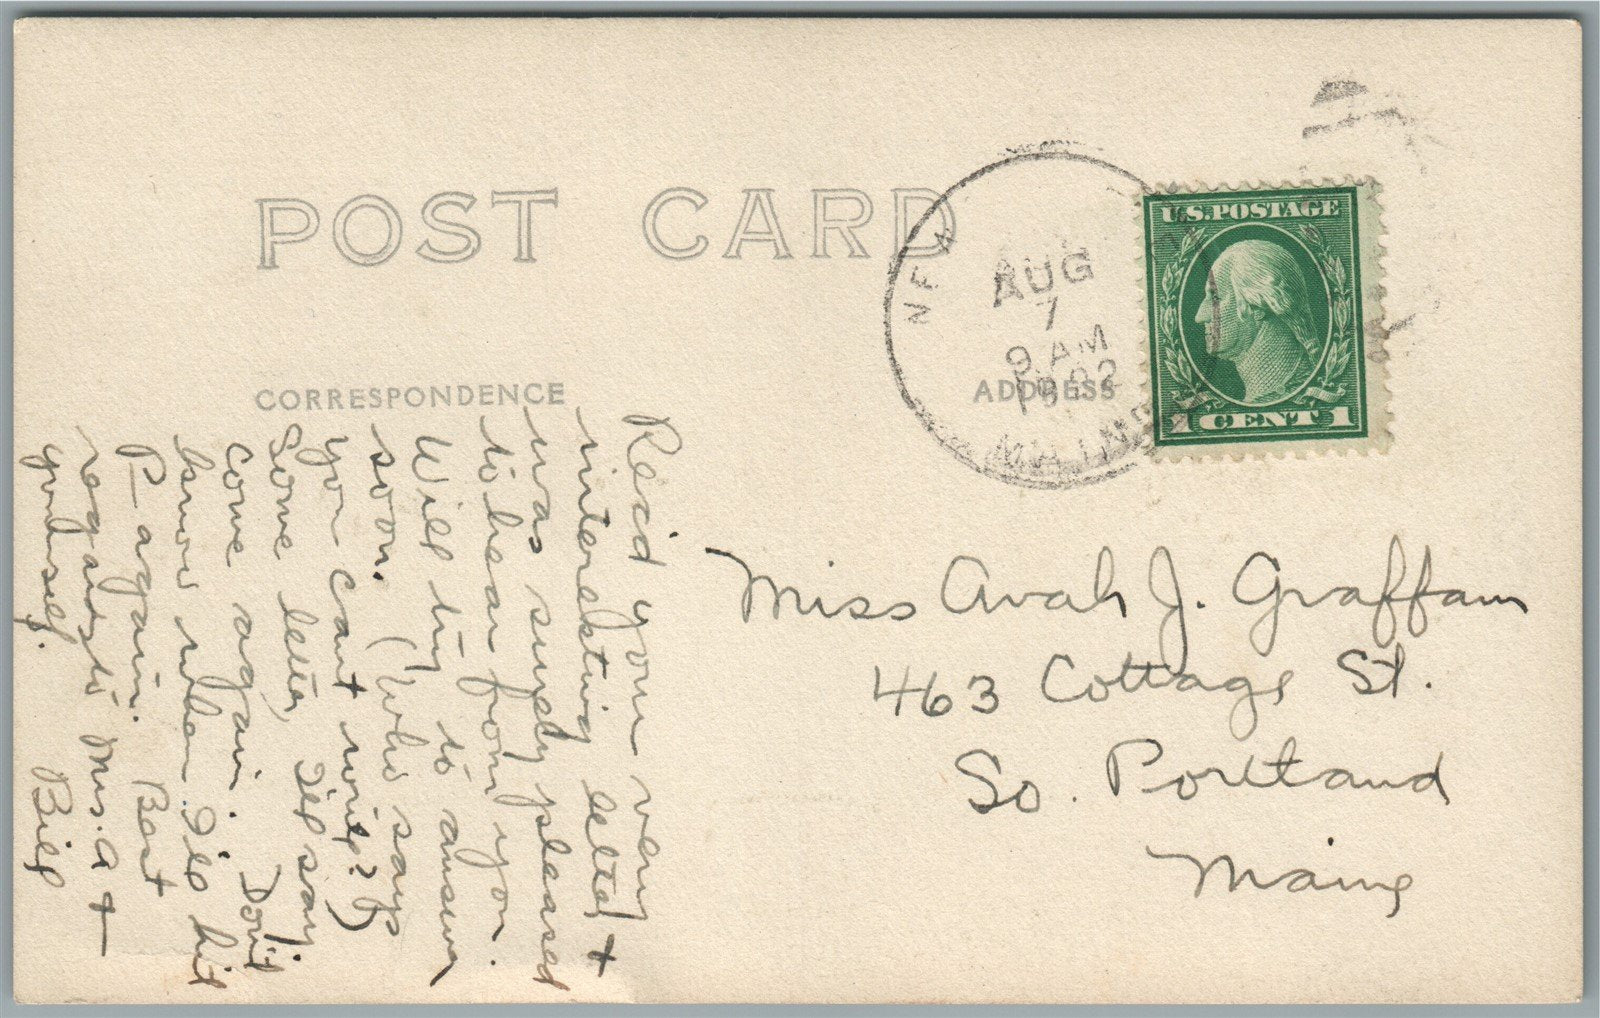 POST CARD
CORRESPONDENCE
ADDRESS
AUG
7
9 AM
WASHINGTON
U.S. POSTAGE
1 CENT 1
Rec'd your very
interesting letter +
was surely pleased
to hear from you.
Will try to answer
soon. (Who says
you can't write?)
Some letter, I'll say.
Come again. Don't
know when I'll hit
P— again. Best
regards to Mrs. A +
yourself. Bill
Miss Avah J. Graffam
463 Cottage St.
So. Portland
Maine